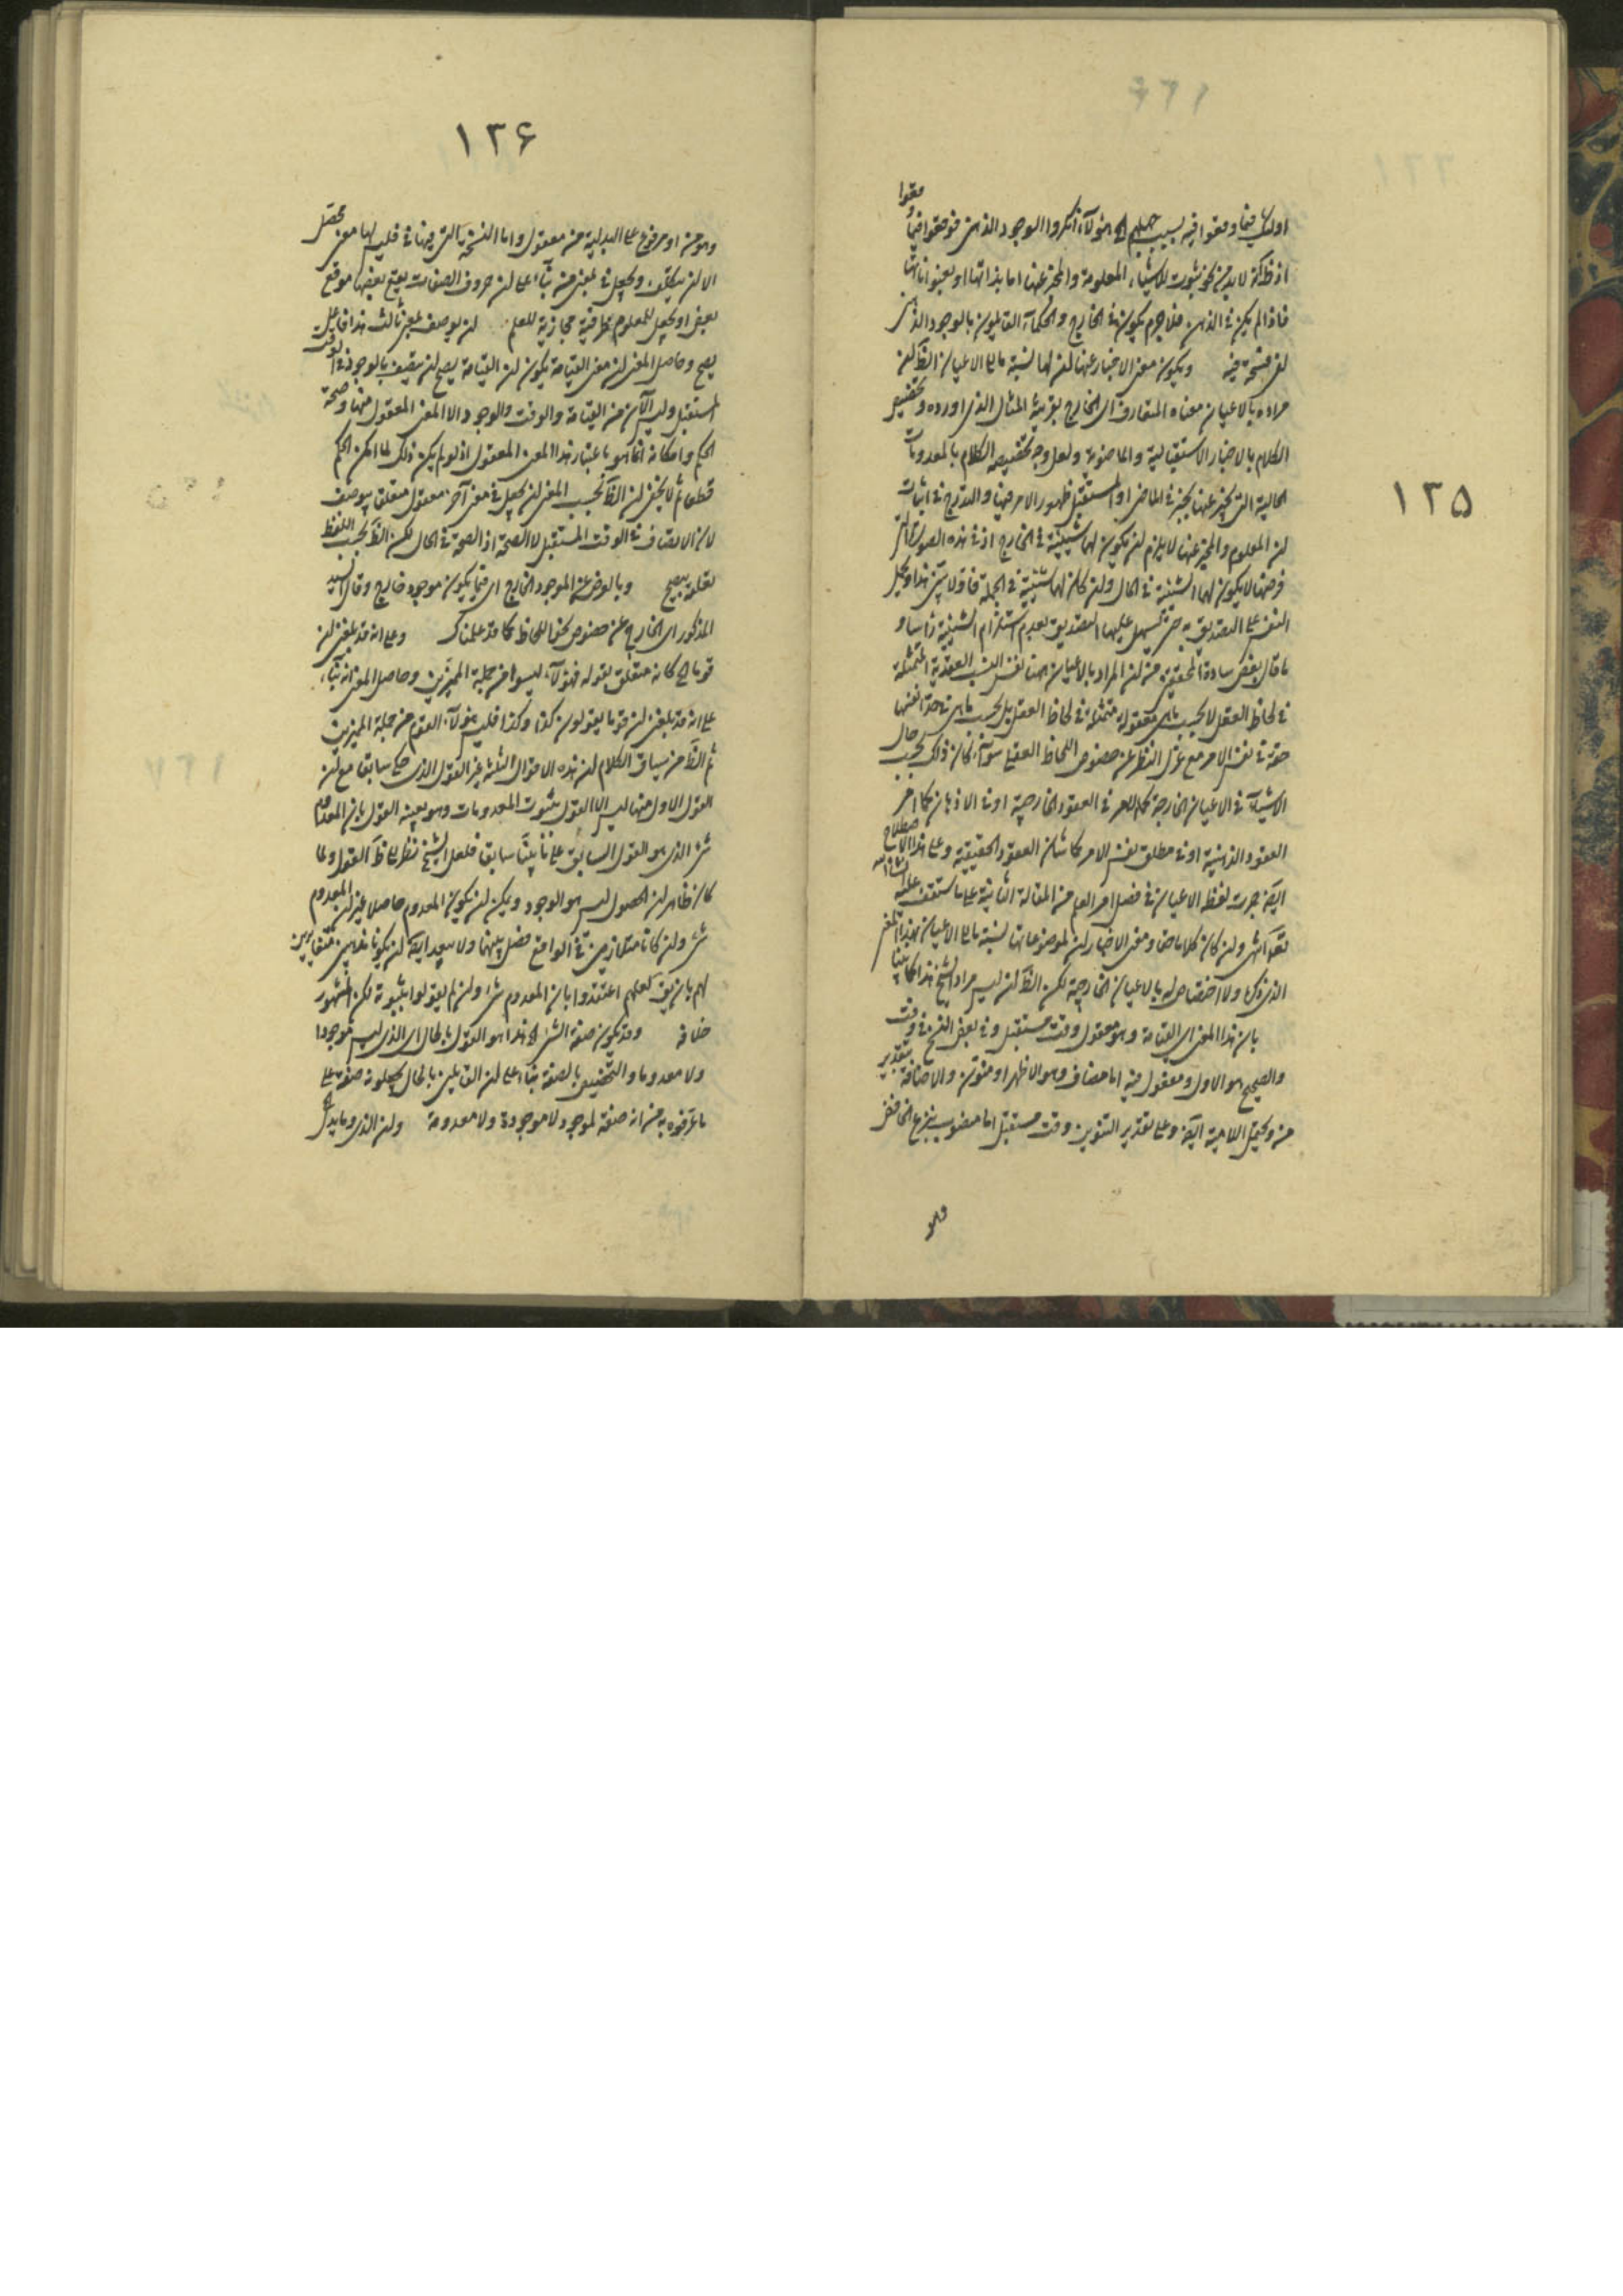 ١٢٥
معقوا
اولئك فيما وقعوا فيه بسبب جهلهم اه هؤلاء انكروا الوجود الذهنى فوقعوا فيما
اذ ظ انه لا بد من نحو ثبوت للاشياء المعلومة والمخبر عنها اما بذاتها او
فاذا لم يكن فى الذهن فلا جرم يكون فى الخارج والحكماء القايلون بالوجود الذهنى
لفى فسحة فيه ويكون معنى الاخبار عنها ان لها نسبة ما الى الاعيان الظ ان
مراده بالاعيان معناه المتعارف اى الخارج بقرينة المثال الذى اورده وتخصيص
الكلام بالاخبار الاستقبالية والماضوية ولعل وجه تخصيصه الكلام بالمعدومات
الحالية التى يخبر عنها بخبر فى الماضى او المستقبل ظهور الامر فيها والتدرج فى اثبات
ان المعلوم والمخبر عنها لا يلزم ان يكون لها شيئية فى الخارج اذ فى هذه الصورة
فرضها لا يكون لها الشيئية فى الحال وان كان لها شيئية فى الجملة فاولا يتبين هذا
النفس على التصديق به حتى يسهل عليها التصديق بعدم استلزام الشيئية راسا و
ما قال بعض سادة المحققين من ان المراد بالاعيان هنا نفس النسب العقدية المتمثلة
فى لحاظ العقل لا بحسب ما هى معقولة متمثلة فى لحاظ العقل بل بحسب ما هى فى حد انفسها
حقة فى نفس الامر مع عزل النظر عن خصوص اللحاظ العقلى سواء كان ذلك بحسب حال
الاشياء فى الاعيان الخارجة كما الامر فى العقود الخارجية او فى الاذهان كما امر
العقود الذهنية او فى مطلق نفس الامر كما شان العقود الحقيقية وعلى هذا الاصطلاح
ايضا جرت لفظة الاعيان فى فصل امر العلم من المقالة الثانية على ما ستقف عليه
انشاء الله
تعالى وان كان كلاما ومعنى الاخبار ان لموضوعاتها نسبة ما الى الاعيان بهذا المعنى
الذى ذكره ولا اختصاص له بالاعيان الخارجية لكن الظ ان ليس مراد الشيخ هذا كما بينا
بان هذا المعنى اى القيامة وهو معقول وقت مستقبل وفى بعض النسخ فى وقت
والصحيح هو الاول ومعقول فيه اما مضاف وهو الاظهر او منون والاضافة بتقدير
من ويحتمل اللامية ايضا وعلى تقدير التنوين وقت مستقبل اما منصوب بنزع الخافض
وهو
١٢۶
وهو من او مرفوع على البدلية من معقول واما النسخة التى فيها فى فليس لها معنى محصل
الا ان يتكلف ويجعل فى بمعنى من بناء على ان حروف الصفات يقع بعضها موقع
بعض او يجعل للمعلوم ظرفية مجازية للعلم ان يوصف بمعنى ثالث هذا فاعل
يصح وحاصل المعنى ان معنى القيامة يكون ان القيامة يصح ان يتصف بالوجود فى الوقت
المستقبل وليس الآن من القيامة والوقت والوجود الا المعنى المعقول منها وصحة
الحكم وامكانه انما هو باعتبار هذا المعنى المعقول اذ لو لم يكن ذلك لما امكن الحكم
قطعا ثم لا يخفى ان الظ بحسب المعنى ان يجعل فى معنى آخر معقول متعلق بيوصف
لان الاتصاف فى الوقت المستقبل لا الصحة اذ الصحة فى الحال لكن الظ بحسب اللفظ
تعلقه بيصح وبالعرض عن الموجود الخارج اى فيما يكون موجود خارج وقال السيد
المذكور اى الخارج عن خصوص نحو اللحاظ كما قد علمناك وعلى انه قد بلغنى ان
قوما اه كانه متعلق بقوله فهؤلاء ليسوا من جملة المميزين وحاصل المعنى انه بناء
على انه قد بلغنى ان قوما يقولون كذا وكذا فليس هؤلاء القوم من جملة المميزين
ثم الظ من سياق الكلام ان هذه الاقوال الثلثة غير القول الذى حكى سابقا مع ان
القول الاول منها ليس الا القول بثبوت المعدومات وهو بعينه القول بان المعدوم
شئ الذى هو القول السابق على ما بينا سابقا فلعل الشيخ نظر الى ظ القول ولما
كان ظاهر ان الحصول ليس هو الوجود ويمكن ان يكون المعدوم حاصلا غير ان المعدوم
شئ وان كانا متلازمين فى الواقع فصل بينهما ولا يبعد ايضا ان يكونا مذهبين متغايرين
لهم بان يق بعضهم اعتقدوا بان المعدوم شئ وان لم يقولوا بثبوته لكن المشهور
خلافه وقد يكون صفة الشئ اه هذا هو القول بالحال اى الذى ليس موجودا
ولا معدوما والتخصيص بالصفة بناء على ان القايلين بالحال يجعلونه صفة على
ما عرفوه به من انه صفة لموجود لا موجودة ولا معدومة وان الذى وما يدل اه